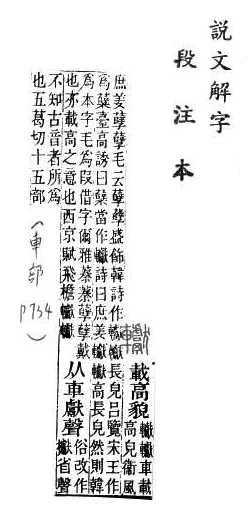 說文解字
段注本
載高貌
車載
高皃衛風
庶姜孽孽毛云孽孽盛飾韓詩作
長皃呂覽宋王作
為櫱臺高誘曰櫱當作 詩曰庶姜
高長皃然則韓
為本字毛為叚借字爾雅蓁蓁孽孽戴
也亦載高之意也西京賦飛檐
从車獻聲
俗改作
省聲
不知古音者所為
也五葛切十五部
(車部
p734)